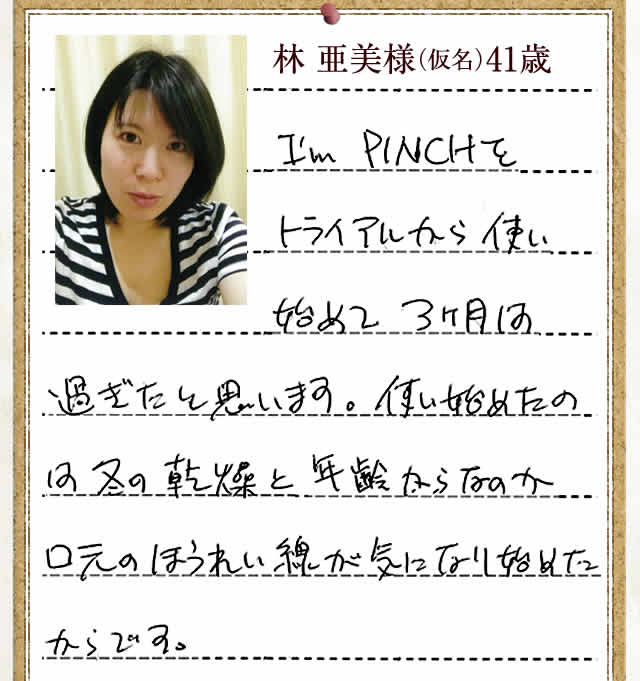 林 亜美様(仮名)41歳
I'm PINCHを
トライアルから使い
始めて 3ヶ月は
過ぎたと思います。使い始めたの
は冬の乾燥と年齢からなのか
口元のほうれい線が気になり始めた
からです。